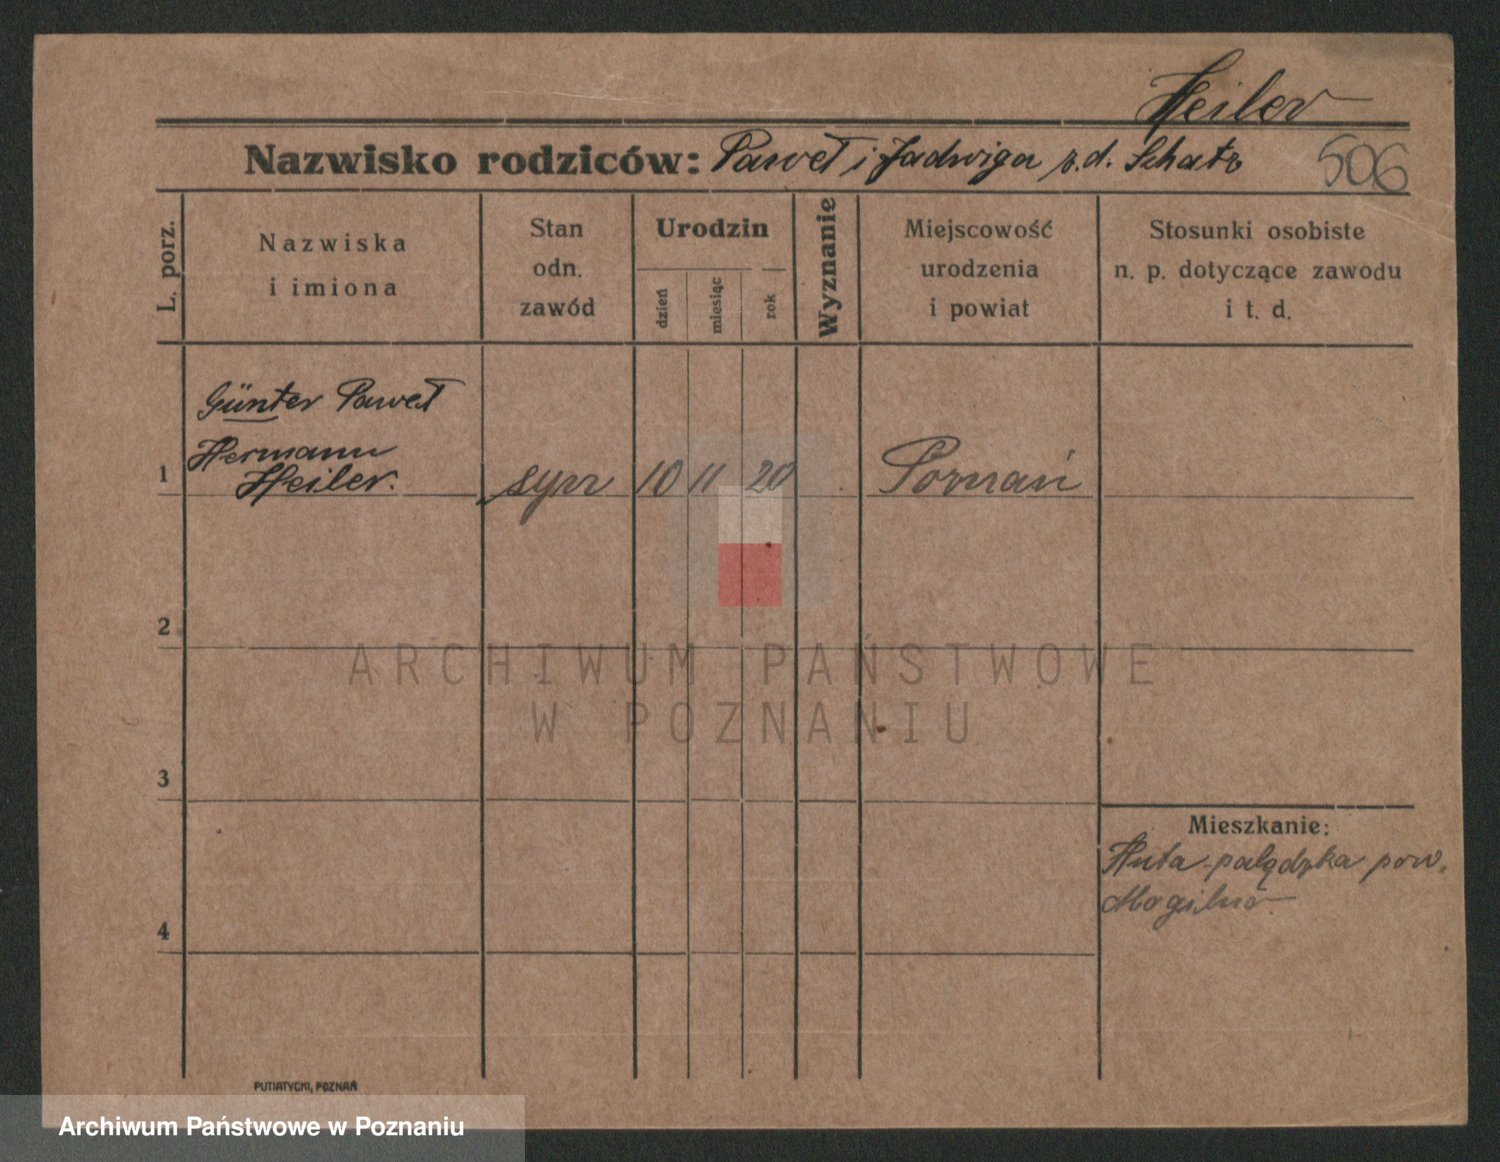 Heiler
Nazwisko rodziców: Paweł i Jadwiga z.d. Schatz 506
L. porz.
Nazwiska
i imiona
Stan
odn.
zawód
Urodzin
dzień
miesiąc
rok
Wyznanie
Miejscowość
urodzenia
i powiat
Stosunki osobiste
n. p. dotyczące zawodu
i t. d.
Günter Paweł
Hermann
1 Heiler. syn 10 11 20 Poznań
2
ARCHIWUM PAŃSTWOWE
W POZNANIU
3
Mieszkanie:
Huta-palędzka pow.
Mogilno
4
PUTIATYCKI, POZNAŃ
Archiwum Państwowe w Poznaniu